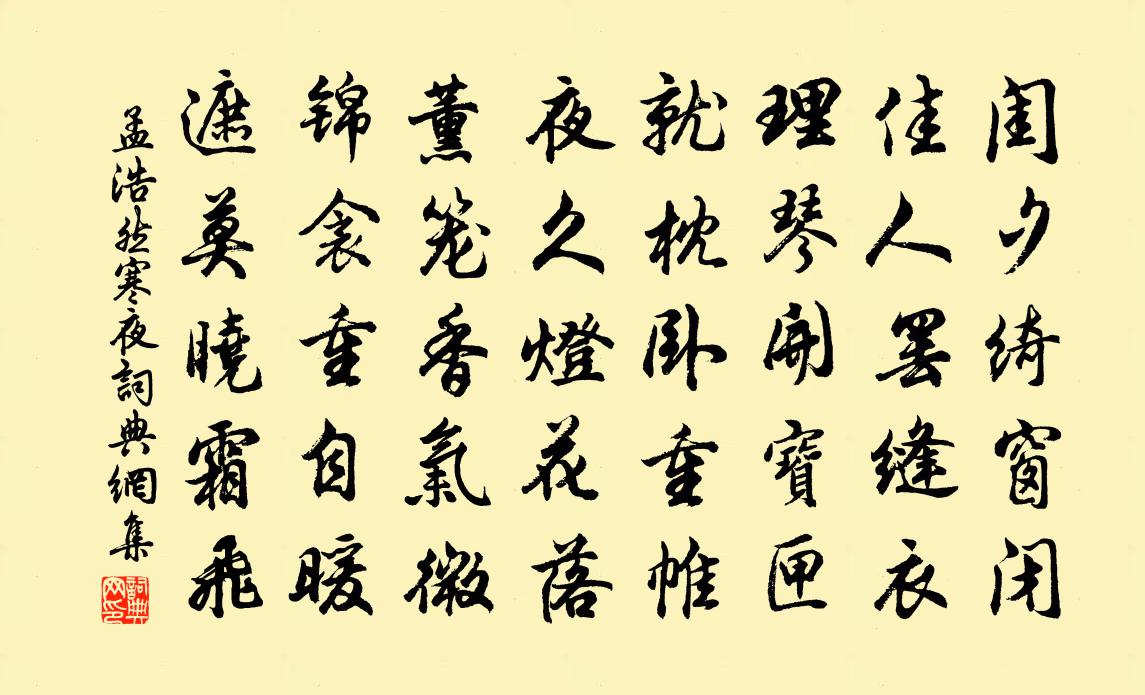 闺夕绮窗闭
佳人罢缝衣
理琴開寶匣
就枕卧重帷
夜久燈花落
薰笼香氣微
锦衾重自暖
遮莫曉霜飛
孟浩然寒夜詞典網集
詞典网印